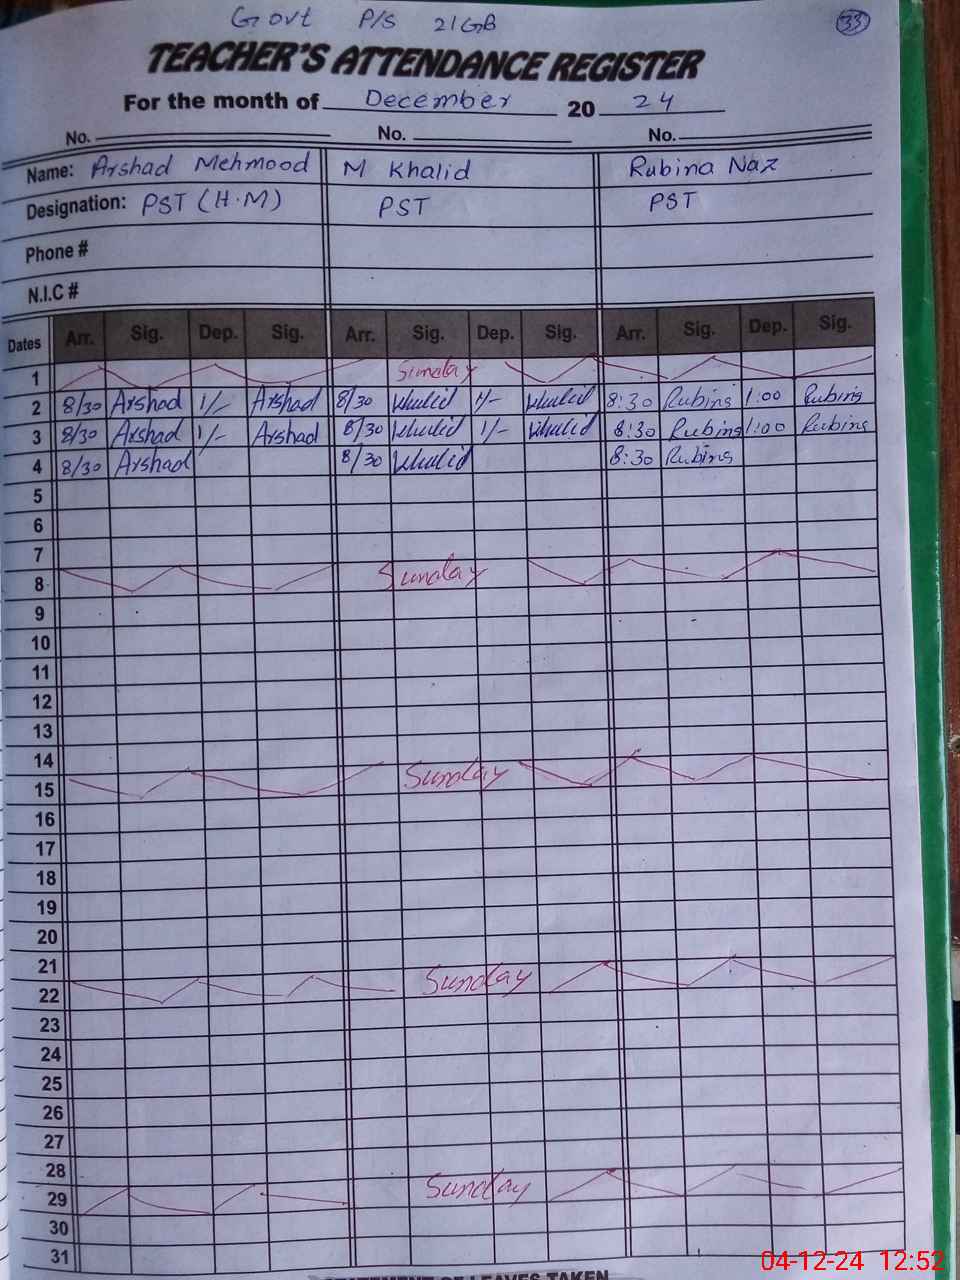 Govt P/S 21GB
33
TEACHER'S ATTENDANCE REGISTER
For the month of December 20 24
No. No. No.
Name: Arshad Mehmood M Khalid Rubina Naz
Designation: PST (H.M) PST PST
Phone #
N.I.C #
Dates Arr. Sig. Dep. Sig. Arr. Sig. Dep. Sig. Arr. Sig. Dep. Sig.
1 Sunday
2 8/30 Arshad 1/- Arshad 8/30 Khalid 1/- Khalid 8:30 Rubina 1:00 Rubina
3 8/30 Arshad 1/- Arshad 8/30 Khalid 1/- Khalid 8:30 Rubina 1:00 Rubina
4 8/30 Arshad 8/30 Khalid 8:30 Rubina
5
6
7
8 Sunday
9
10
11
12
13
14
15 Sunday
16
17
18
19
20
21
22 Sunday
23
24
25
26
27
28
29 Sunday
30
31
STATEMENT OF LEAVES TAKEN
04-12-24 12:52